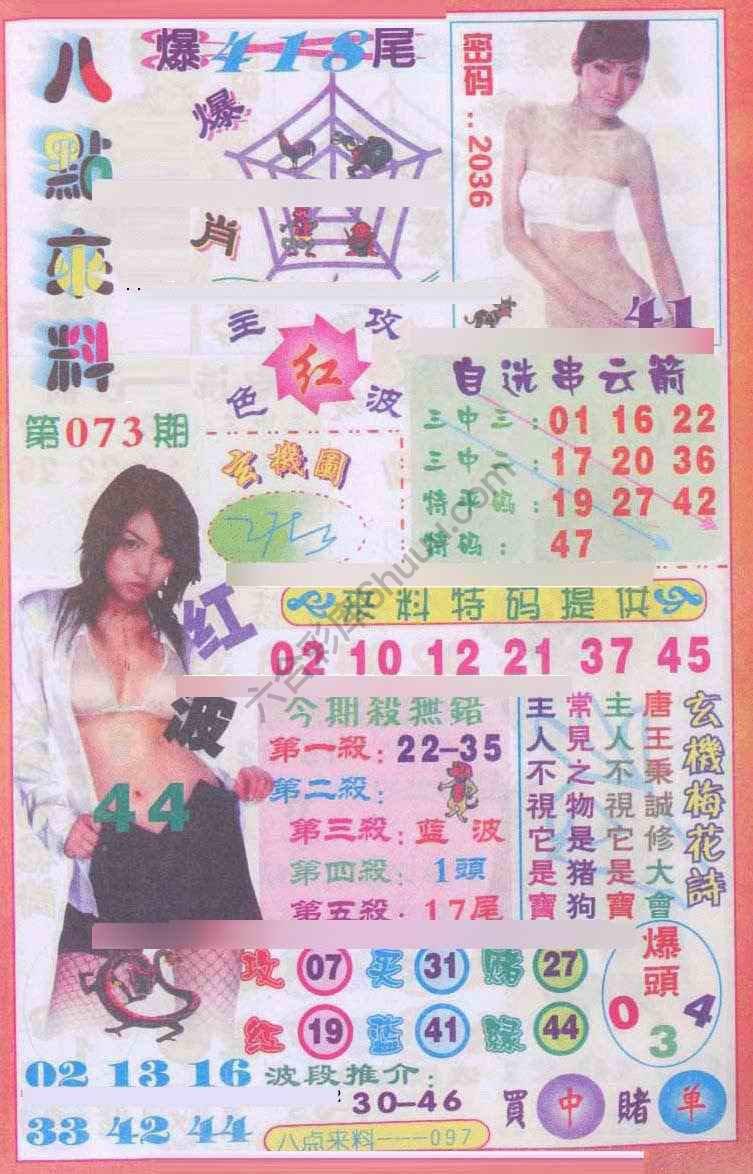 八點來料
爆418尾
爆肖
密码..2036
41
主攻
红
色波
第073期
自选串云箭
三中三:01 16 22
三中二:17 20 36
特平码:19 27 42
特码:47
玄機圖
来料特码提供
02 10 12 21 37 45
红波
44
今期殺無錯
第一殺:22-35
第二殺:
第三殺:蓝波
第四殺:1頭
第五殺:17尾
玄機梅花詩
唐王秉誠修大會
主人不視它是寶
常見之物是猪狗
主人不視它是寶
攻07买31赌27
红19蓝41绿44
爆頭
0 3 4
02 13 16
33 42 44
波段推介:
30-46
買中賭单
八点来料---097
六合彩库